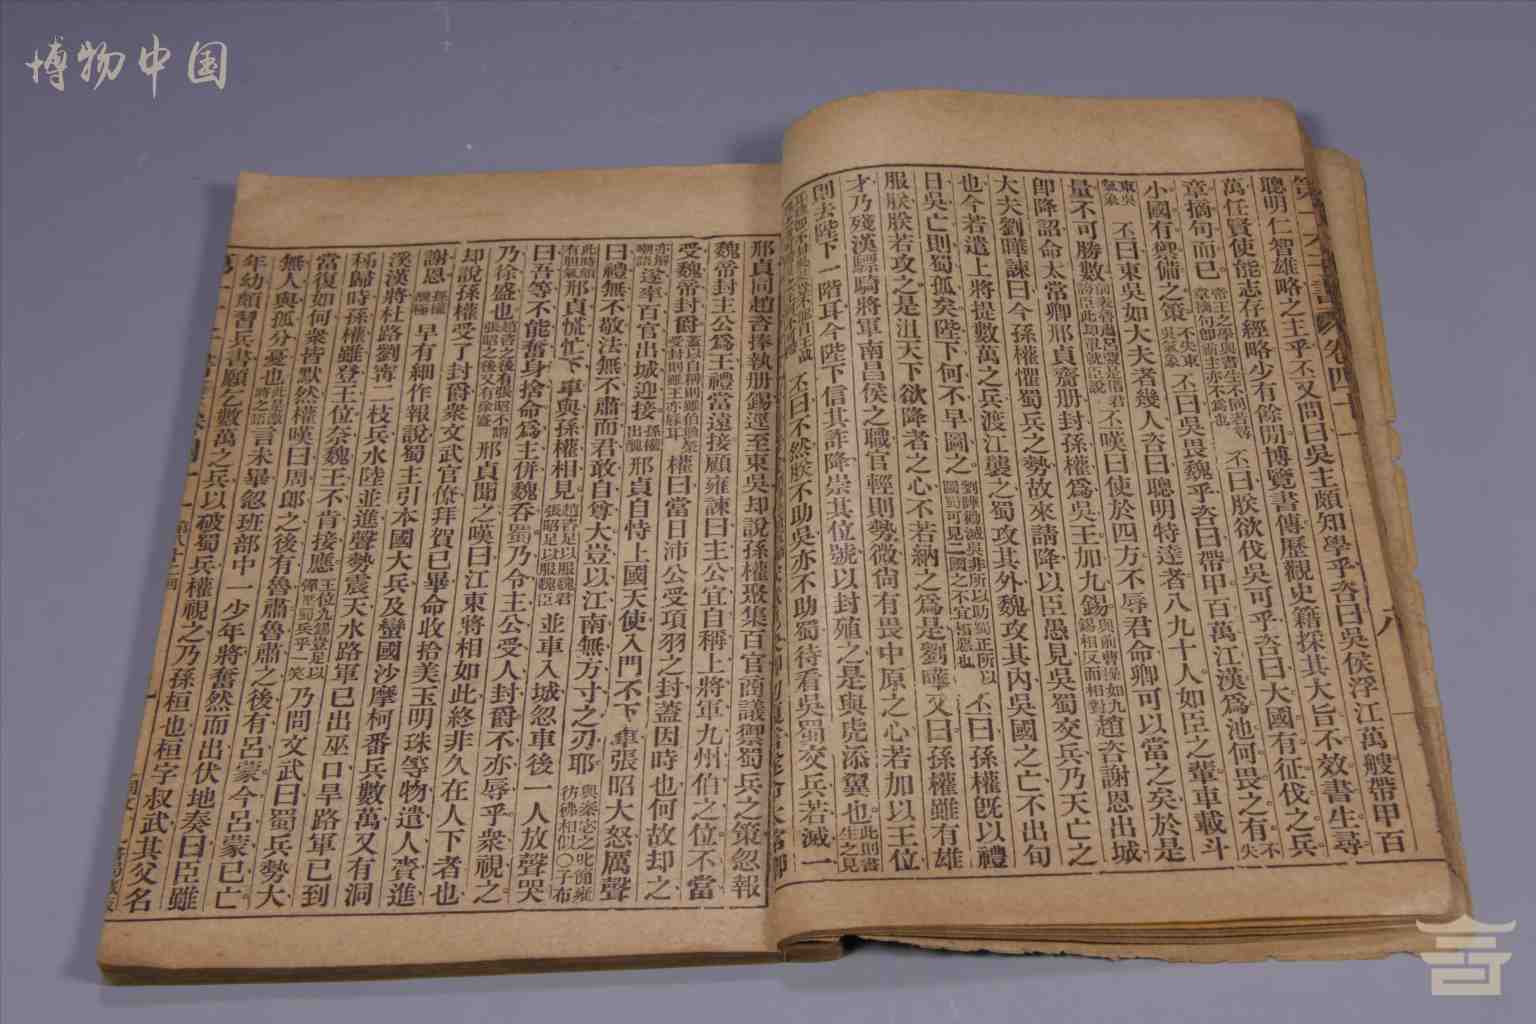 第一才子書 卷四十一 八
聰明仁智雄略之主乎丕又問曰吳主頗知學乎咨曰吳侯浮江萬艘帶甲百
萬任賢使能志存經略少有餘閒博覽書傳歷觀史籍採其大旨不效書生尋
章摘句而已帝王之學與書生不同若尋章摘句卽前主亦不爲也丕曰朕欲伐吳可乎咨曰大國有征伐之兵
小國有禦備之策不失東吳氣象丕曰吳畏魏乎咨曰帶甲百萬江漢爲池何畏之有不失
東吳氣象丕曰東吳如大夫者幾人咨曰聰明特達者八九十人如臣之輩車載斗
量不可勝數丕嘆曰使於四方不辱君命卿可以當之矣於是
卽降詔命太常卿邢貞齎册封孫權爲吳王加九錫與前曹操加九錫相反而相對趙咨謝恩出城
大夫劉曄諫曰今孫權懼蜀兵之勢故來請降以臣愚見吳蜀交兵乃天亡之
也今若遣上將提數萬之兵渡江襲之蜀攻其外魏攻其內吳國之亡不出旬
日吳亡則蜀孤矣陛下何不早圖之劉曄勸滅吳非所以助蜀正所以圖蜀可見二國之不宜搆惡也丕曰孫權旣以禮
服朕朕若攻之是沮天下欲降者之心不若納之爲是劉曄又曰孫權雖有雄
才乃殘漢驃騎將軍南昌侯之職官輕則勢微尙有畏中原之心若加以王位
則去陛下一階耳今陛下信其詐降崇其位號以封殖之是與虎添翼也此則書生之見
丕曰不然朕不助吳亦不助蜀待看吳蜀交兵若滅一
邢貞同趙咨捧執册錫逕至東吳却說孫權聚集百官商議禦蜀兵之策忽報
魏帝封主公爲王禮當遠接顧雍諫曰主公宜自稱上將軍九州伯之位不當
受魏帝封爵蓋以自稱則雖伯亦榮受封則雖王亦辱耳權曰當日沛公受項羽之封蓋因時也何故却之
亦解嘲語遂率百官出城迎接孫權出醜邢貞自恃上國天使入門不下車張昭大怒厲聲
曰禮無不敬法無不肅而君敢自尊大豈以江南無方寸之刃耶與秦宓之叱簡雍彷彿相似〇子布
此時頗有胆氣邢貞慌忙下車與孫權相見趙咨足以服魏君張昭足以服魏臣並車入城忽車後一人放聲哭
曰吾等不能奮身捨命爲主併魏吞蜀乃令主公受人封爵不亦辱乎衆視之
乃徐盛也趙咨之後有張昭不謂張昭之後又有徐盛邢貞聞之嘆曰江東將相如此終非久在人下者也
却說孫權受了封爵衆文武官僚拜賀已畢命收拾美玉明珠等物遣人賫進
謝恩孫權醜極早有細作報說蜀主引本國大兵及蠻國沙摩柯番兵數萬又有洞
溪漢將杜路劉寧二枝兵水陸並進聲勢震天水路軍已出巫口旱路軍已到
秭歸時孫權雖登王位奈魏主不肯接應王位九錫豈足以彈壓蜀兵乎一笑乃問文武曰蜀兵勢大
當復如何衆皆默然權嘆曰周郎之後有魯肅魯肅之後有呂蒙今呂蒙已亡
無人與孤分憂也言未畢忽班部中一少年將奮然而出伏地奏曰臣雖
年幼頗習兵書願乞數萬之兵以破蜀兵權視之乃孫桓也桓字叔武其父名
第八十二回
博物中国